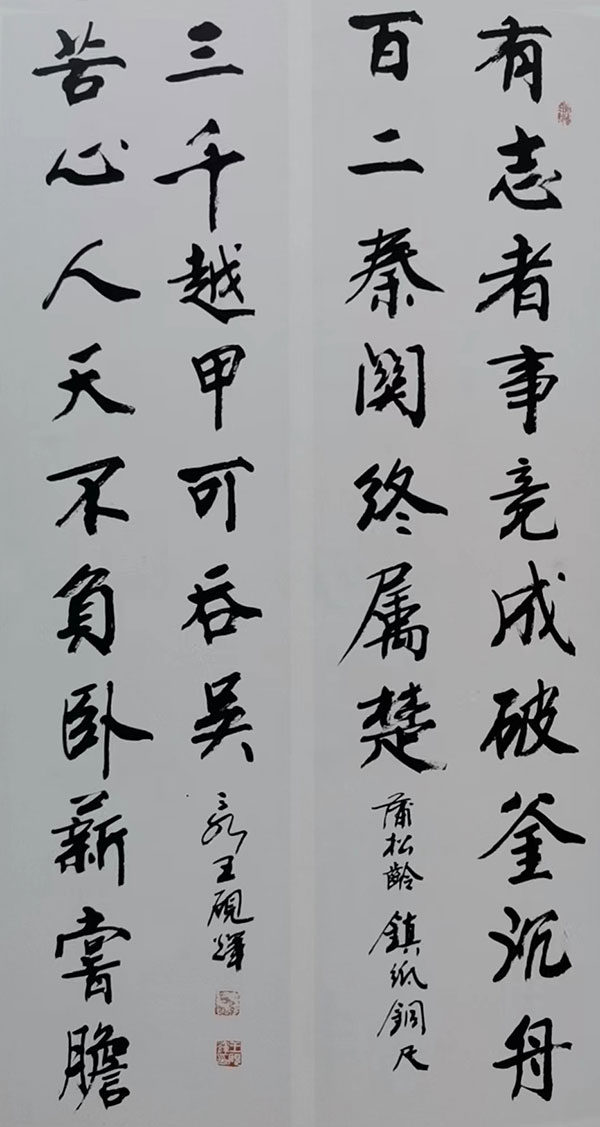 有志者事竟成破釜沉舟
百二秦関终属楚
蒲松齡 鎮紙銅尺
苦心人天不負卧薪嘗膽
三千越甲可吞吴
王硯輝